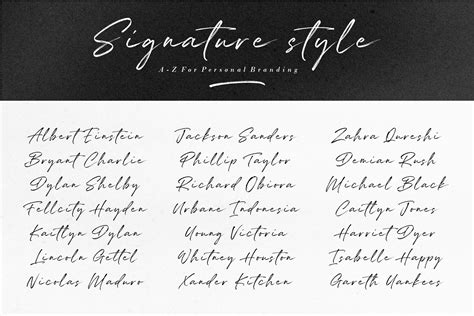 Signature style
A-Z For Personal Branding
Albert Einstein
Bryant Charlie
Dylan Shelby
Felicity Hayden
Kaitlyn Dylan
Lincoln Gettel
Nicolas Maduro
Jackson Sanders
Phillip Taylor
Richard Obiora
Urbane Indonesia
Young Victoria
Whitney Houston
Xander Kitchen
Zahra Qureshi
Demian Rush
Michael Black
Caitlyn Jones
Harriet Dyer
Isabelle Happy
Gareth Yankees